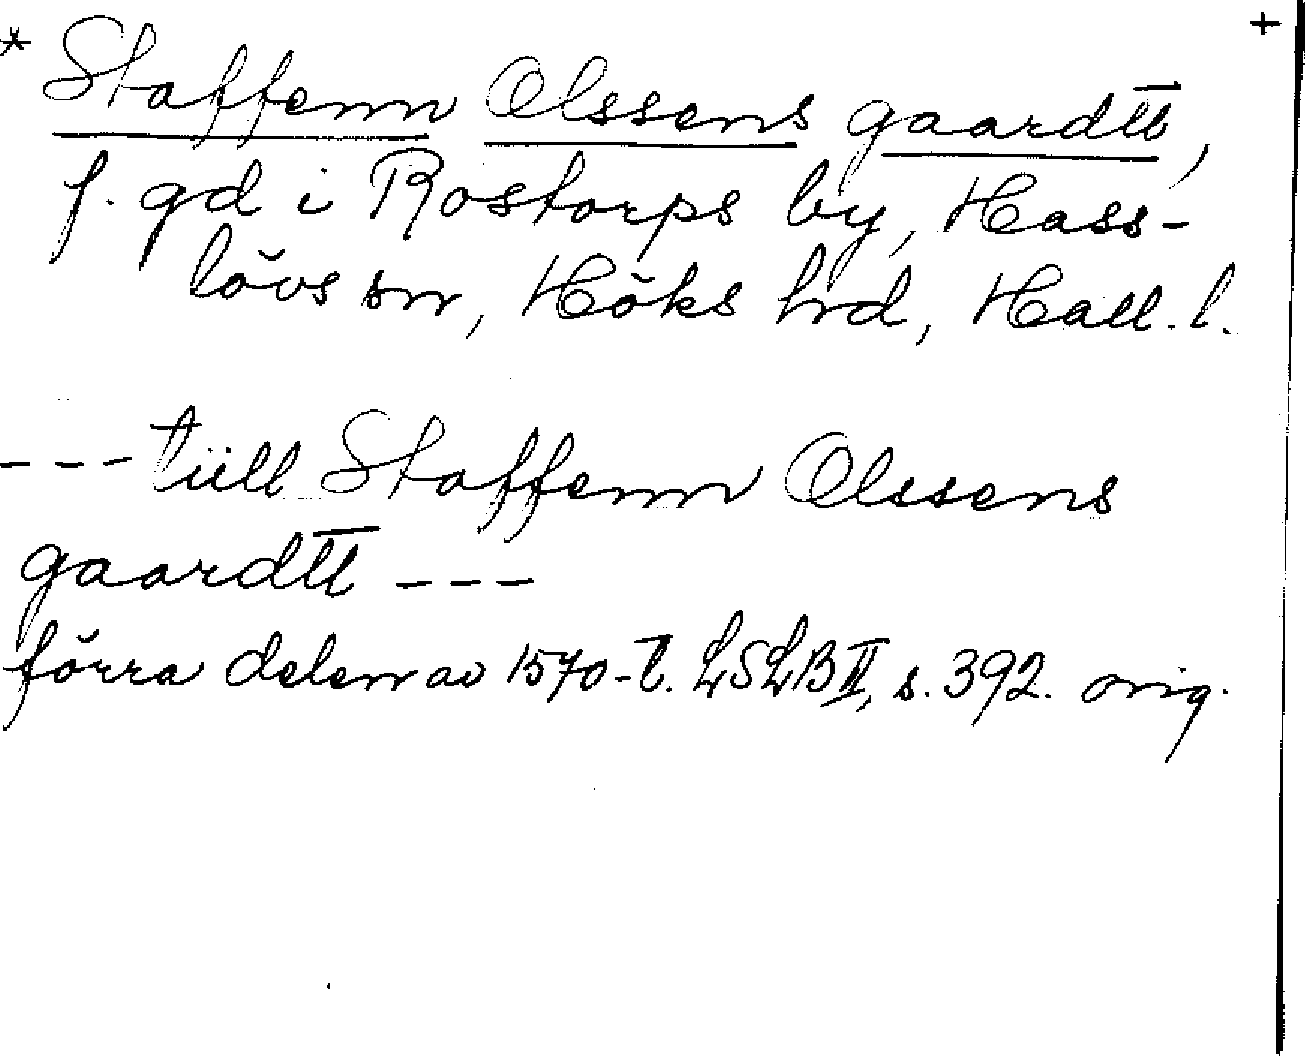 * Staffenn Olssens gaardtt, +
f. gd i Rostorps by, Hass-
lövs sn, Höks hrd, Hall. l.
--- tiill Staffenn Olssens
gaardtt ---
förra delen av 1570-t. LSLB II, s. 392. orig.